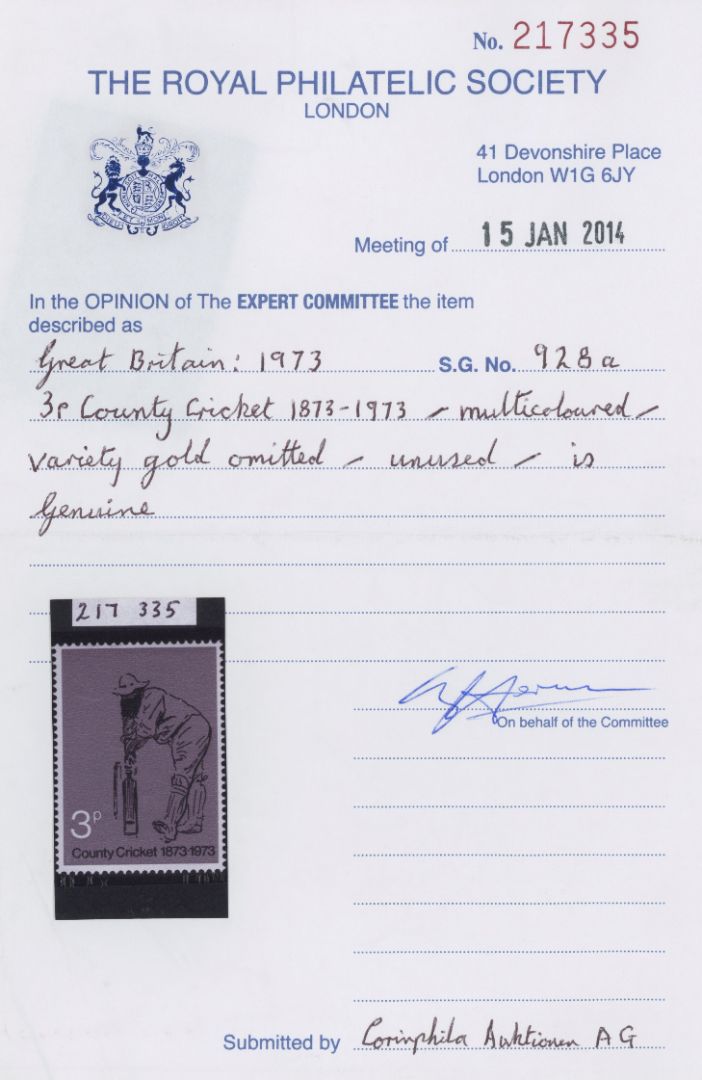 No. 217335
THE ROYAL PHILATELIC SOCIETY
LONDON
41 Devonshire Place
London W1G 6JY
Meeting of 15 JAN 2014
In the OPINION of The EXPERT COMMITTEE the item
described as
Great Britain: 1973 S.G. No. 928a
3p County Cricket 1873-1973 - multicoloured -
variety gold omitted - unused - is
Genuine
217 335
3P
County Cricket 1873-1973
On behalf of the Committee
Submitted by Corinphila Auktionen AG